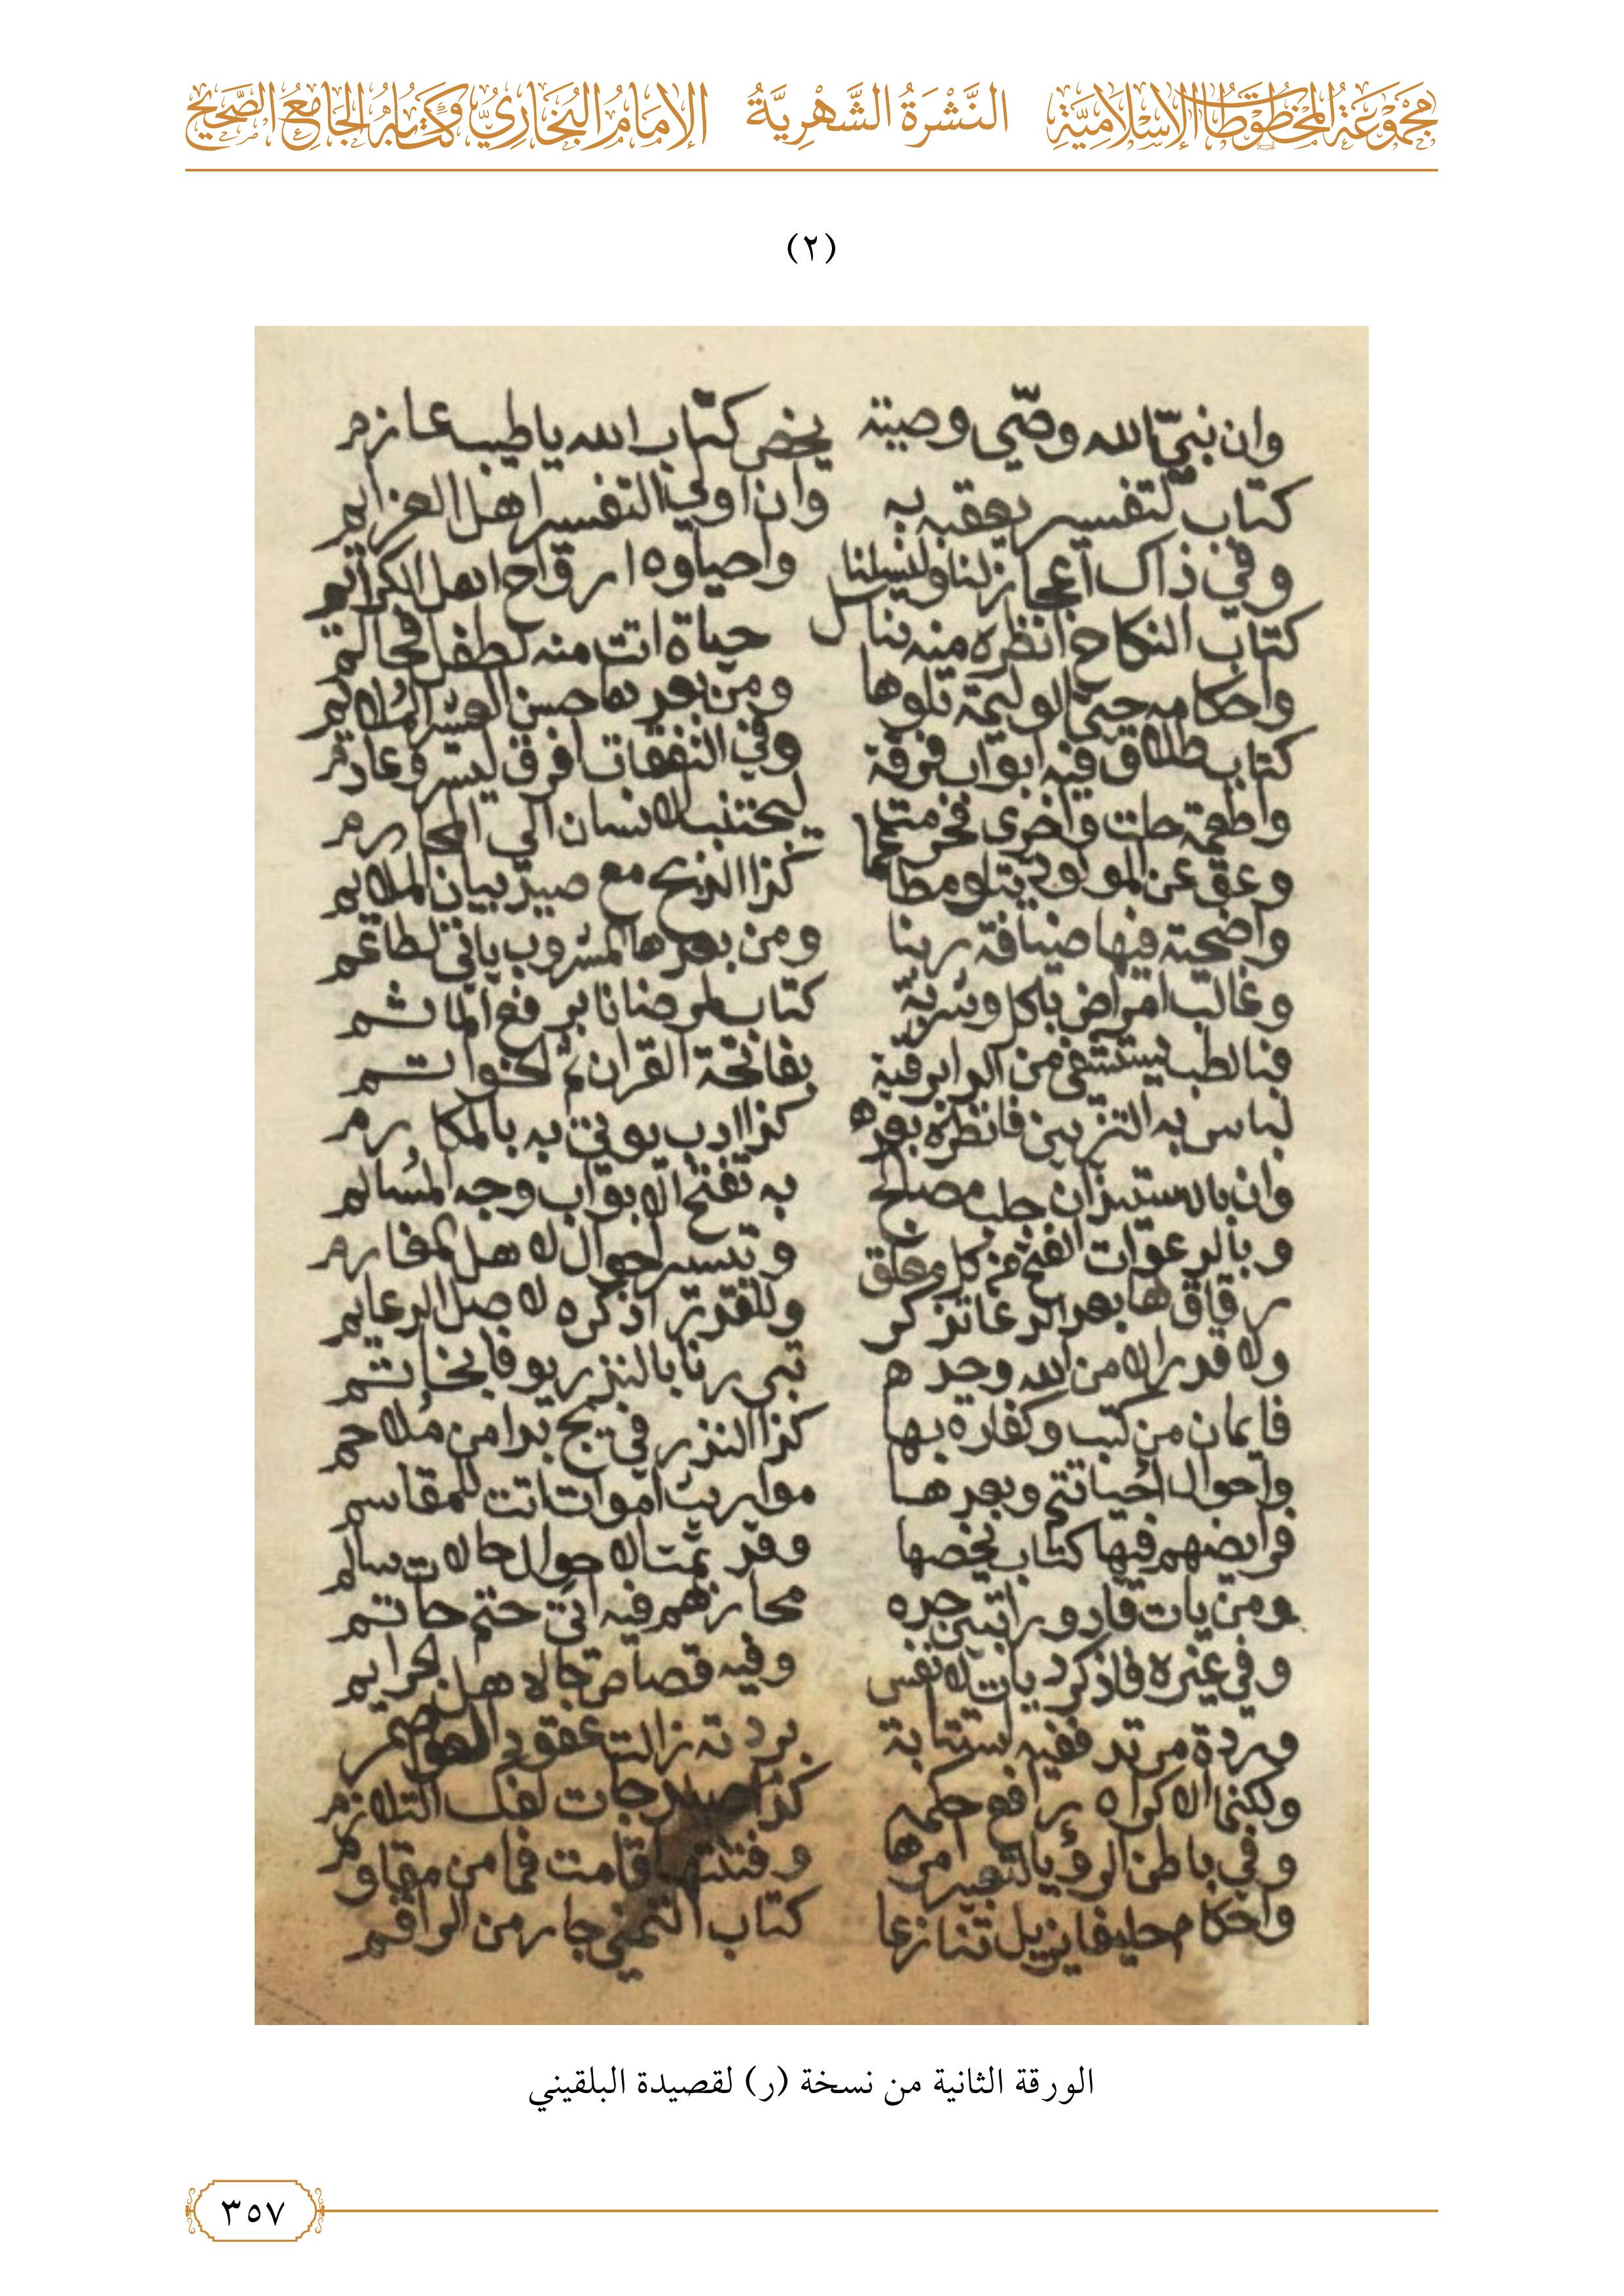 مَجْمُوعَةُ المَخْطُوطَاتِ الإِسْلَامِيَّةِ النَّشْرَةُ الشَّهْرِيَّةُ الإِمَامُ البُخَارِيُّ وَكِتَابُهُ الجَامِعُ الصَّحِيحُ
(٢)
وان نبيّ الله وصّي وصية يخص كتاب الله يا طيب عازم
كتاب لتفسير يعقبه به وان اولي التفسير اهل العزايم
وفي ذاك اعجاز لنا ولنسلنا واحياوه ارواح اهل الكرايم
كتاب النكاح انظره منه تناسل حياة اتت منه لطفل محالم
واحكامه حتى الوليمة تلوها ومن بعدها حسن العشير الملايم
كتاب طلاق فيه ابواب فرقة وفي النفقات افرق ليسر وعادم
واطعمة حلت واخرى فحرمت ليجتنب الانسان الى المحارم
وعق عن المولود يتلو مطاعما كذا الذبح مع صيد بيان الملايم
واضحية فيها ضيافة ربنا ومن بعدها المشروب ياتي لطاعم
وغالب امراض باكل وشربة كتاب لمرضانا برفع الماثم
فبالطب يستشفى من الدا برقية بفاتحة القران ثم الخواتم
لباس به التزيين فانظره بعده كذا ادب يوتى به بالمكارم
وان بالاستيذان جلب مصالح به تفتح الابواب وجه المسالم
وبالدعوات الفتح من كل مغلق وتيسير احوال لاهل المغارم
رقاق بها بعد الدعا تذكر وللقدر اذكره لاصل الدعايم
ولا قدر الا من الله وحده تبررنا بالنذر يوفا بخاتم
فايمان من كتب وكفارة بها كذا النذر في بحج بدا من ملاحم
واحوال احياتتم وبعدها مواريث اموات اتت للمقاسم
فرايضهم فيها كتاب يخصها وقد تمت الاحوال حالات سالم
ومن يات قاذورا تبين حده محازهم فيه اتى حتم حاتم
وفي غيره فاذكر ديات لانفس وفيه قصاص جا لاهل الجرايم
وردة مرتد ففيه استتابة بردته زالت عقود العواصم
ولكنما الاكراه رافع حكمه كذا جات لفك التلازم
وفي باطن الرؤيا لتعبير امرها وفتنتها قامت فما من مقاوم
واحكام خليفا يزيل تنازعا كتاب التمني جا رمز الراقم
الورقة الثانية من نسخة (ر) لقصيدة البلقيني
٣٥٧